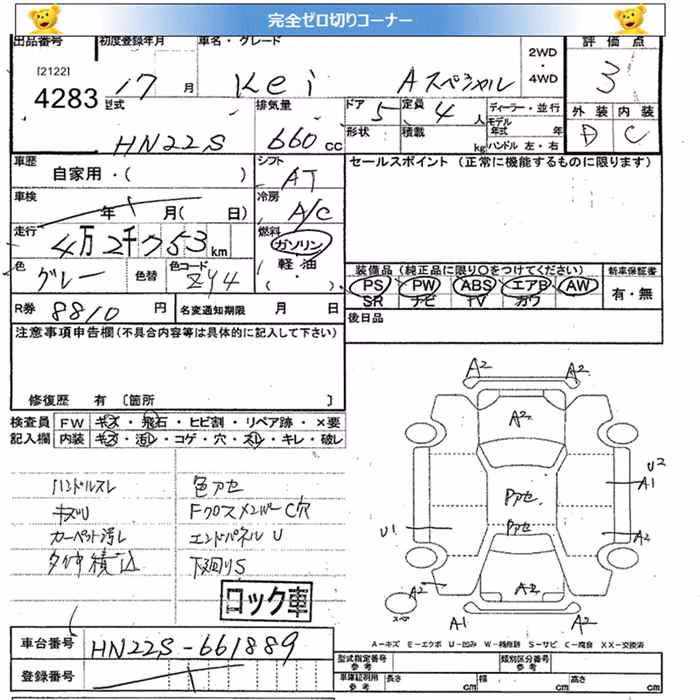 完全ゼロ切りコーナー
出品番号 初度登録年月 車名・グレード 2WD ・ 4WD 評価点
[2122]
4283 17 月 Kei Aスペシャル 3
型式 排気量 ドア 5 定員 4 人 ディーラー・並行 外装 内装
HN22S 660 cc 形状 積載 kg モデル年式 年 ハンドル 左・右 D C
車歴 シフト セールスポイント(正常に機能するものに限ります)
自家用・( ) AT
車検 年 月( 日) 冷房 A/C
走行 4万2千753 km 燃料 ガソリン
軽油
( )
色 グレー 色替 色コード ZY4
装備品(純正品に限り○をつけてください) 新車保証書
PS PW ABS エアB AW 有・無
SR ナビ TV カワ
R券 8810 円 名変通知期限 月 日 後日品
注意事項申告欄(不具合内容等は具体的に記入して下さい)
修復歴 有 [箇所 ]
検査員 FW キズ・飛石・ヒビ割・リペア跡・×要
記入欄 内装 キズ・汚レ・コゲ・穴・スレ・キレ・破レ
ハンドルスレ 色アセ
キズU Fクロスメンバー C穴
カーペット汚レ エンドパネル U
タイヤ積込 下廻りS
コック車
A2 A2
A2
U2
Pアセ A1
U1 Pアセ A2
A2 A2
スペア A1 A2
A-キズ E-エクボ U-凹み W-補修跡 S-サビ C-腐食 XX-交換済
車台番号 HN22S-661889
登録番号
型式指定番号 参考 類別区分番号 参考
車庫証明用 参考 長さ cm 幅 cm 高さ cm